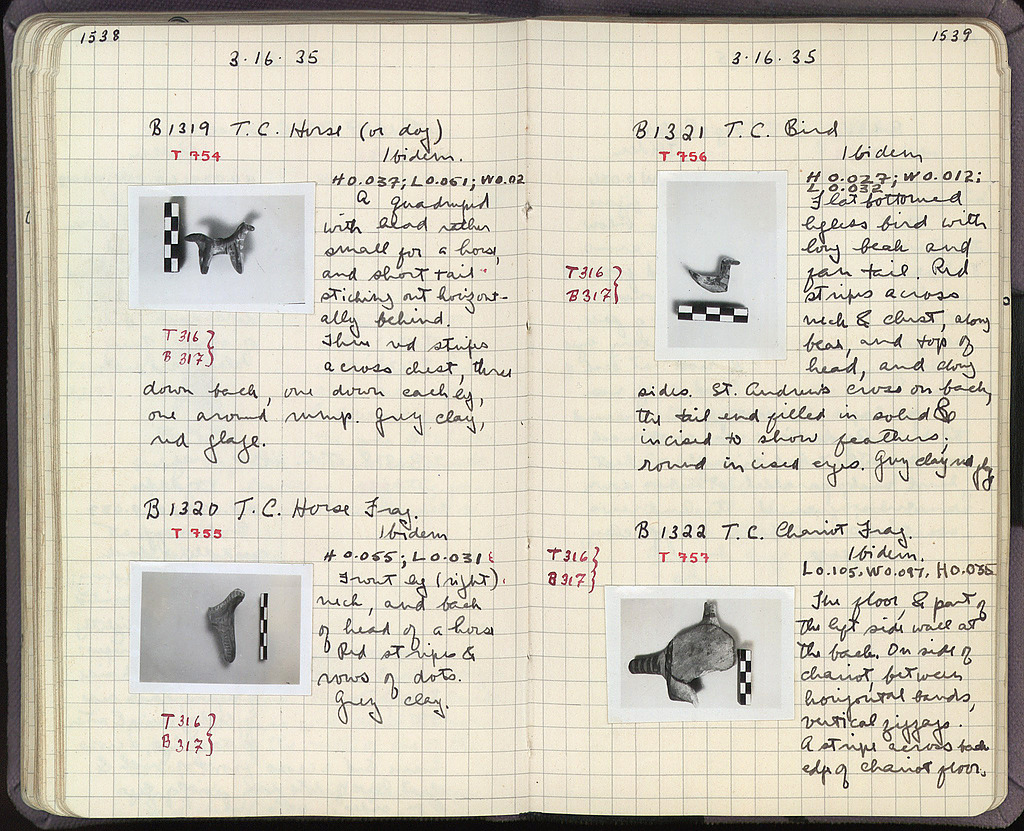 1538
3·16·35
B 1319 T.C. Horse (or dog)
T 754
Ibidem.
H 0.037; L 0.051; W 0.02
A quadruped
with head rather
small for a horse,
and short tail
sticking out horizont-
ally behind.
Three red stripes
across chest, three
down back, one down each leg,
one around rump. Grey clay,
red glaze.
T 316 }
B 317 }
B 1320 T.C. Horse Frag.
T 755
Ibidem
H 0.055; L 0.031
Front leg (right),
neck, and back
of head of a horse
Red stripes &
rows of dots.
Grey clay.
T 316 }
B 317 }
1539
3·16·35
B 1321 T.C. Bird
T 756
Ibidem
H 0.027; W 0.012;
L 0.032
Flat bottomed
legless bird with
long beak and
fan tail. Red
stripes across
neck & chest, along
beak, and top of
head, and along
sides. St. Andrew's cross on back,
the tail end filled in solid &
incised to show feathers;
round incised eyes. Grey clay red glaze
T 316 }
B 317 }
B 1322 T.C. Chariot Frag.
T 757
Ibidem.
L 0.105, W 0.097, H 0.035
The floor, & part of
the left side wall at
the back. On side of
chariot between
horizontal bands,
vertical zigzags.
A stripe across back
edge of chariot floor.
T 316 }
B 317 }